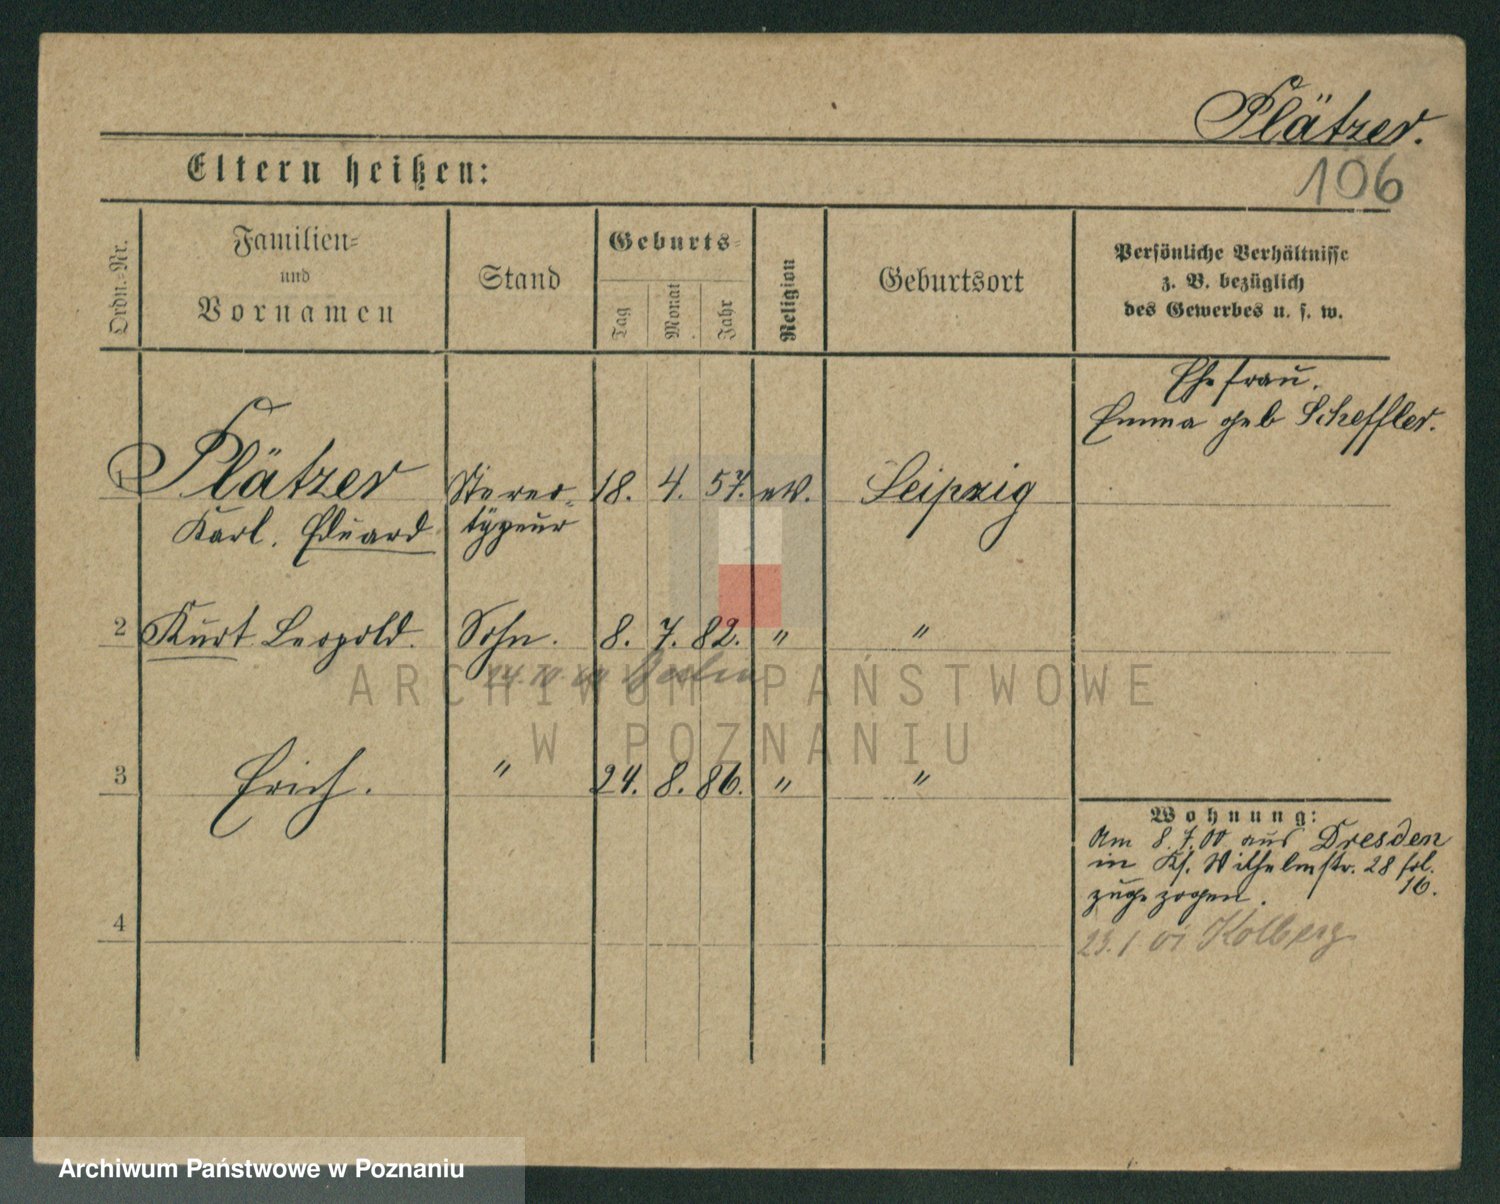 Plätzer.
106
Eltern heißen:
Ordn.-Nr.
Familien-
und
Vornamen
Stand
Geburts-
Tag
Monat
Jahr
Religion
Geburtsort
Persönliche Verhältnisse
z. B. bezüglich
des Gewerbes u. s. w.
Ehefrau.
Emma geb Scheffler.
1 Plätzer Stereo- 18. 4. 57. ev. Leipzig
Karl. Eduard typeur
2 Kurt Leopold. Sohn. 8. 7. 82. " "
Berlin
3 Erich. " 24. 8. 86. " "
Wohnung:
Am 8.7.00 aus Dresden
in Kf. Wilhelmstr. 28
16.
zugezogen.
4
23.1 01 Kolberg
ARCHIWUM PAŃSTWOWE
W POZNANIU
Archiwum Państwowe w Poznaniu